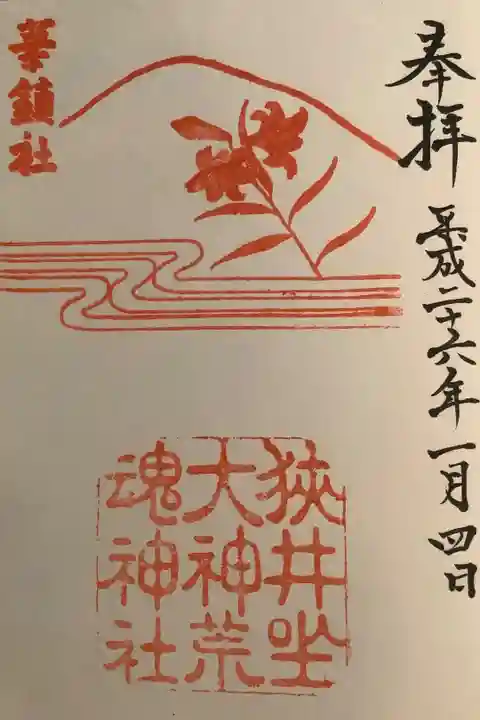 奉拝
平成二十六年一月四日
狭井坐
大神荒
魂神社
華鎮社